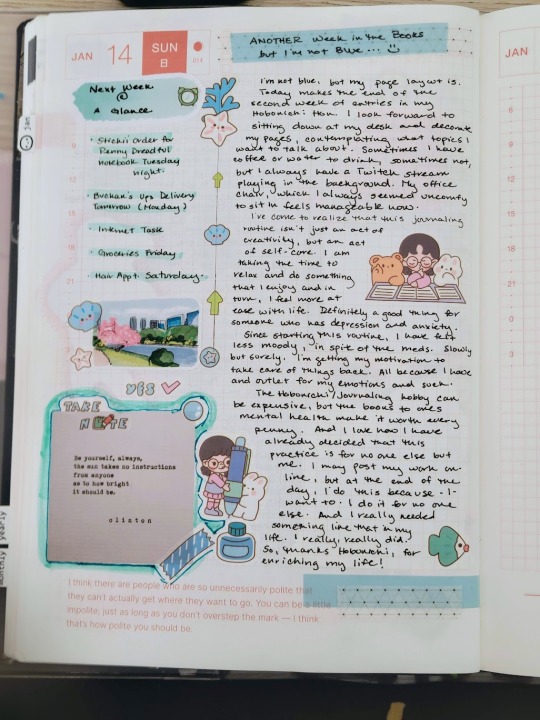 JAN 14 SUN
日
014
ANOTHER Week in the Books
but I'm not Blue...
JAN
Next Week
@
A Glance
• Stickii Order for
Penny Dreadful
Notebook Tuesday
night.
• UPS Delivery
Tomorrow (Monday)
• Internet Task
• Groceries Friday
• Hair Appt. Saturday.
yes
TAKE
NOTE
Be yourself, always,
the sun takes no instructions
from anyone
as to how bright
it should be.
clinton
I'm not blue, but my page layout is.
Today makes the end of the
second week of entries in my
Hobonichi Hon. I look forward to
sitting down at my desk and decorate
my pages, contemplating what topics I
want to talk about. Sometimes I have
coffee or water to drink, sometimes not,
but I always have a Twitch stream
playing in the background. My office
chair, which I always seemed uncomfy
to sit in feels manageable now.
I've come to realize that this journaling
routine isn't just an act of
creativity, but an act
of self-care. I am
taking the time to
relax and do something
that I enjoy and in
turn, I feel more at
ease with life. Definitely a good thing for
someone who has depression and anxiety.
Since starting this routine, I have felt
less moody, in spite of the meds. Slowly
but surely, I'm getting my motivation to
take care of things back. All because I have
and outlet for my emotions and such.
The Hobonichi/Journaling hobby can
be expensive, but the boons to ones
mental health make it worth every
penny. And I love how I have
already decided that this
practice is for no one else but
me. I may post my work on-
line, but at the end of the
day, I do this because -I-
want to. I do it for no one
else. And I really needed
something like that in my
life. I really, really did.
So, thanks Hobonichi, for
enriching my life!
I think there are people who are so unnecessarily polite that
they can't actually get where they want to go. You can be a little
impolite; just as long as you don't overstep the mark — I think
that's how polite you should be.
jan
yearly
monthly
9
12
15
18
21
JAN
6
9
12
15
18
21
0
3